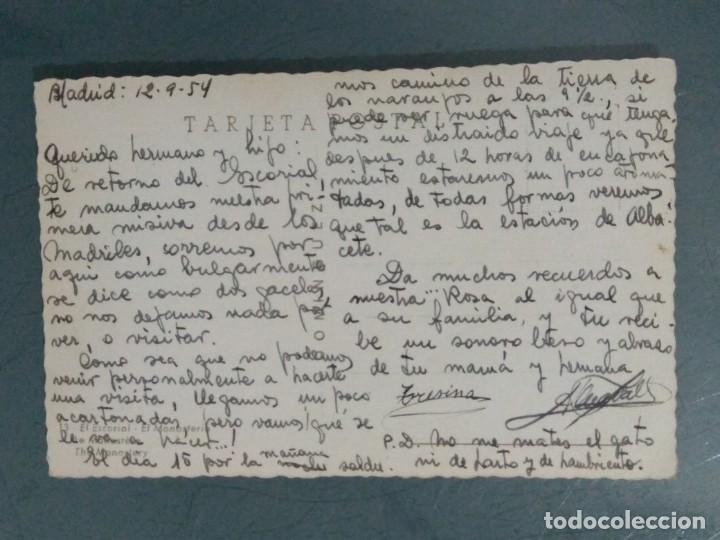 Madrid: 12-9-54
TARJETA POSTAL
Querido hermano y hijo:
De retorno del Escorial,
te mandamos nuestra pri-
mera misiva desde los
Madriles, corremos por
aqui como bulgarmente
se dice como dos gacelas
no nos dejamos nada por
ver, o visitar.
Como sea que no podamos
venir personalmente a hacerte
una visita, llegamos un poco
acartonadas, pero vamos ¡que se
le va a hacer...!
El dia 15 por la mañana saldre
mos camino de la tierra de
los naranjos a las 9½, si
puede ser ruega para que tenga-
mos un distraido viaje ya que
despues de 12 horas de encajona-
miento estaremos un poco aroma-
tadas, de todas formas veremos
que tal es la estación de Alba-
cete.
Da muchos recuerdos a
nuestra... Rosa al igual que
a su familia, y tu reci-
be un sonoro beso y abrazo
de tu mamá y hermana
Tresina
P.D. No me mates el gato
ni de harto y de hambriento.
13 El Escorial - El Monasterio
The Monastery